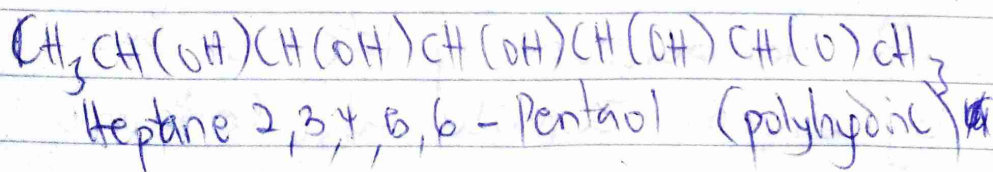 CH₃CH(OH)CH(OH)CH(OH)CH(OH)CH(O)CH₃
Heptane 2,3,4,5,6 - Pentaol (polyhydric)